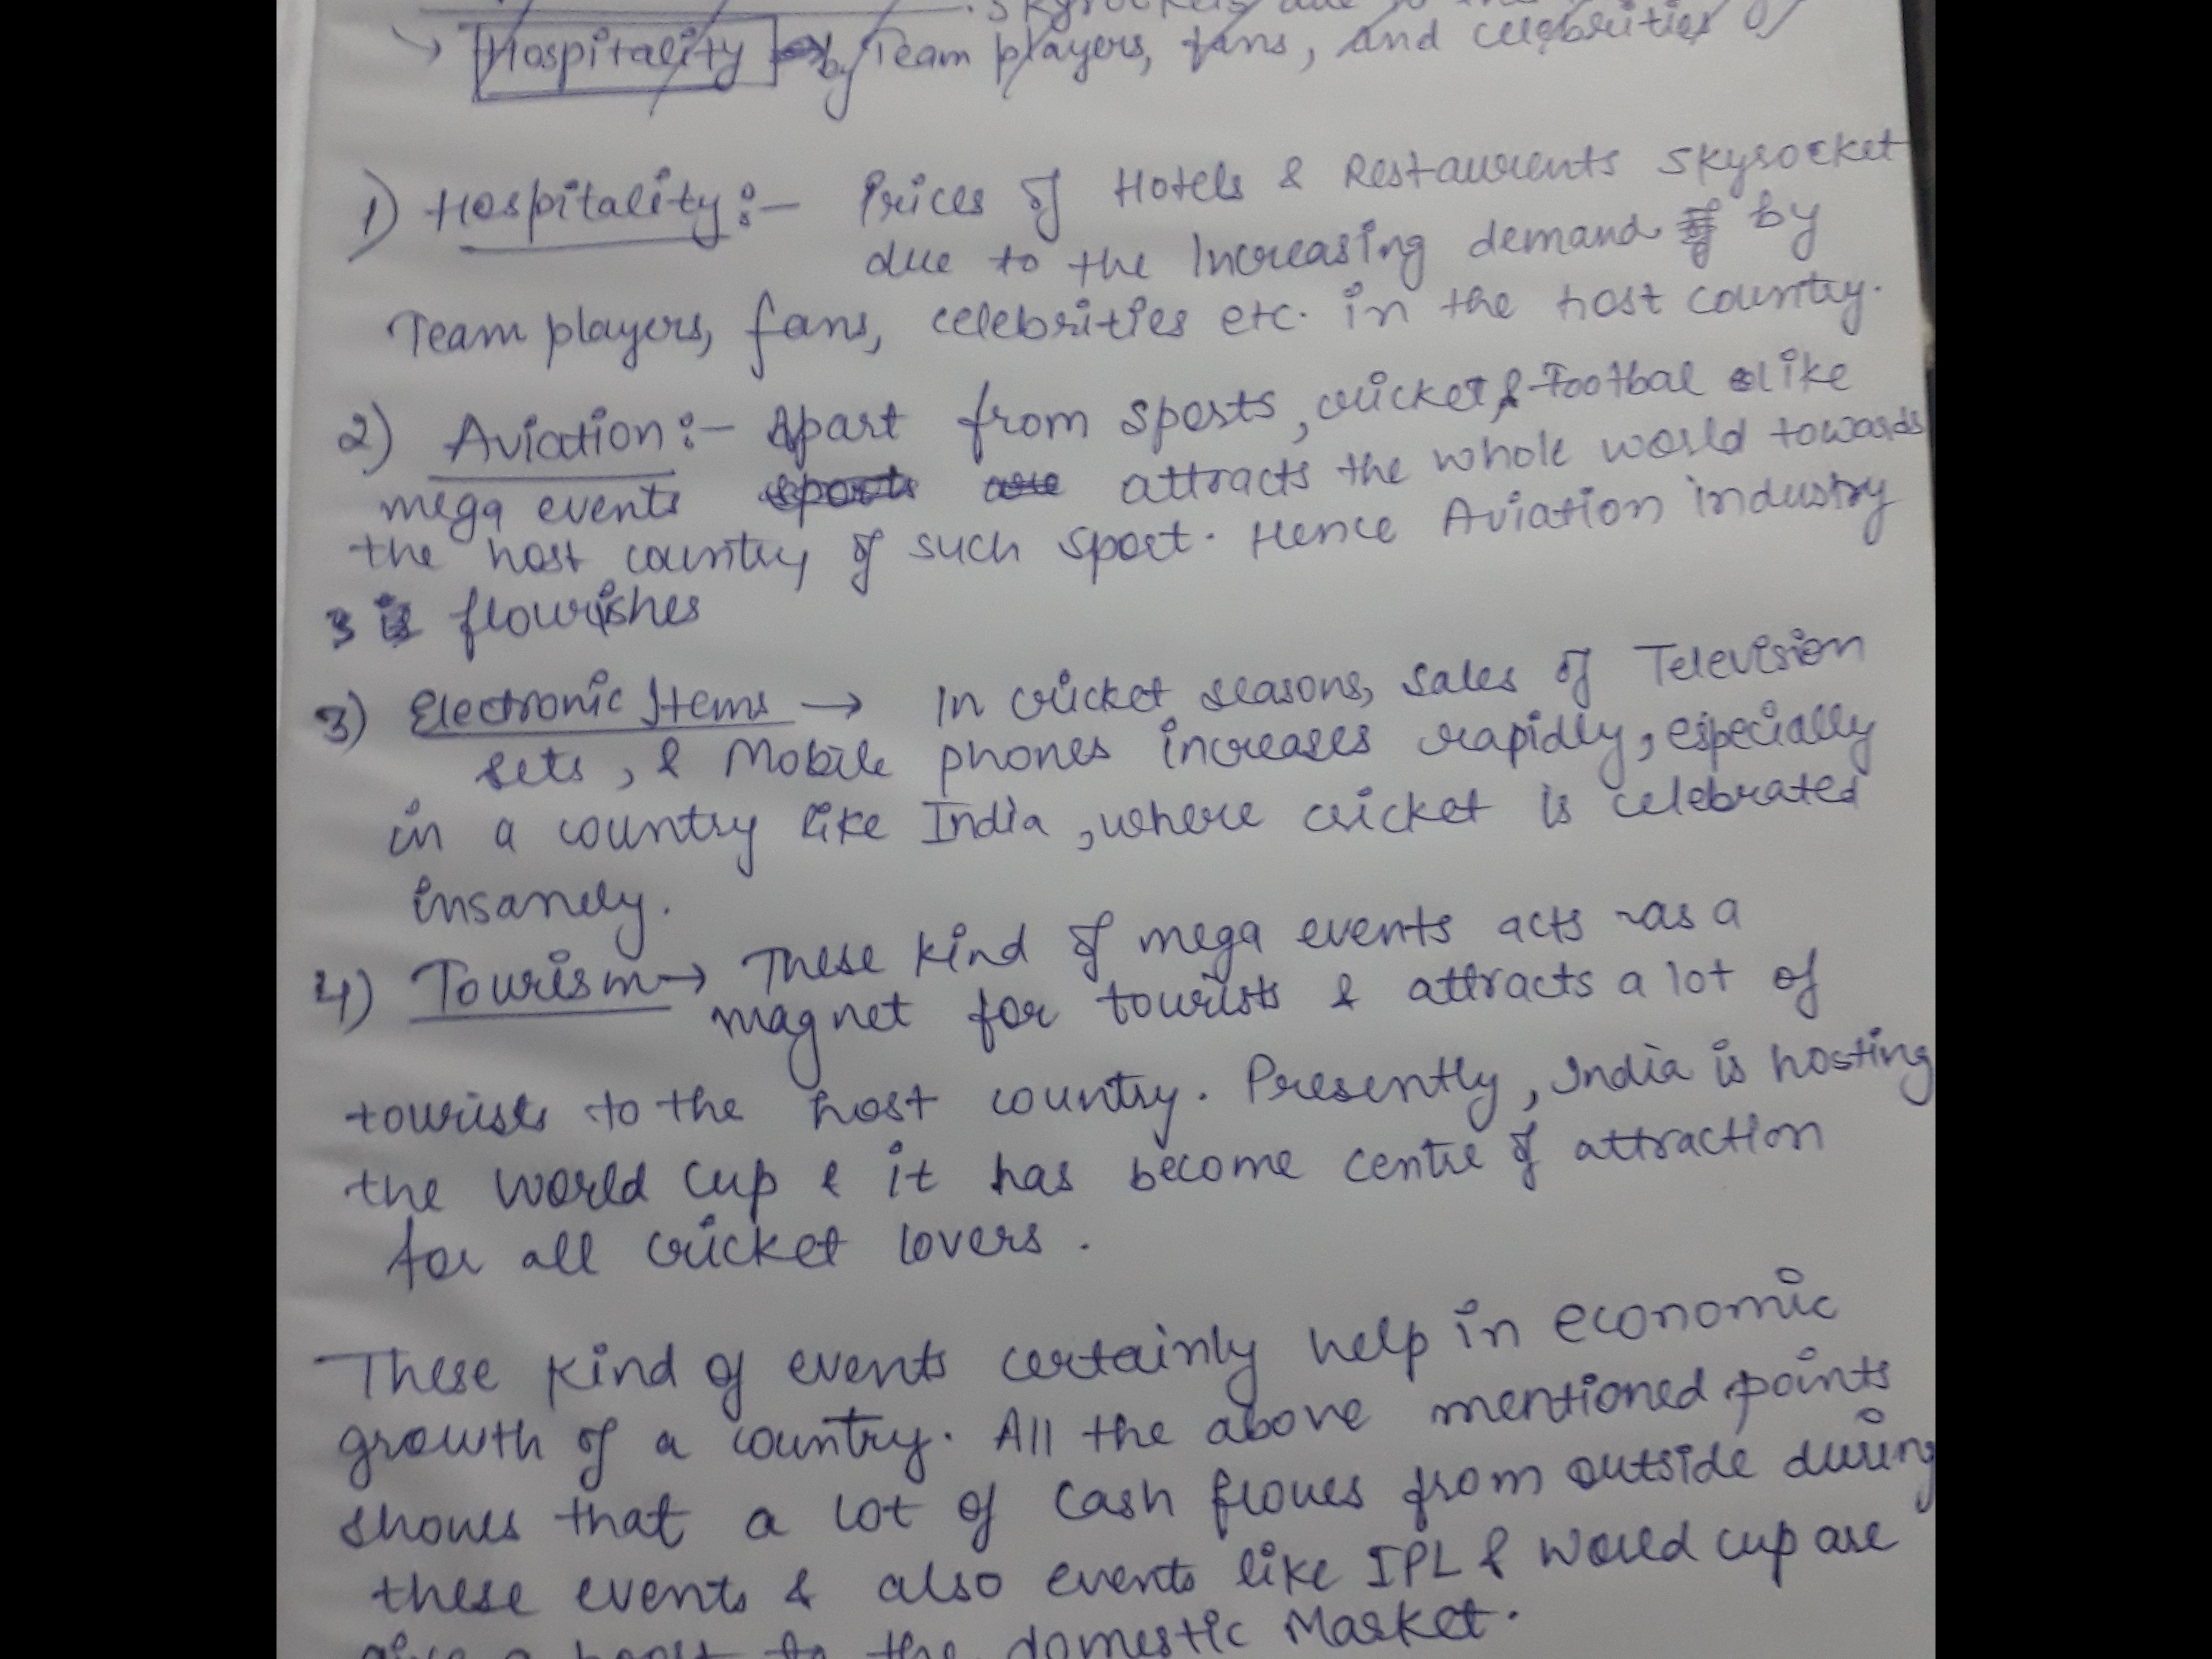 Hospitality by Team players, fans, and celebrities
1) Hospitality :- Prices of Hotels & Restaurents skysocket
due to the Increasing demand by
Team players, fans, celebrities etc. in the host country.
2) Aviation :- Apart from sports, cricket & Footbal like
mega events sports are attracts the whole world towards
the host country of such sport. Hence Aviation industry
is flourishes
3) Electronic Items → In cricket seasons, sales of Television
sets, & Mobile phones increases rapidly, especially
in a country like India, where cricket is celebrated
insanely.
4) Tourism → These kind of mega events acts as a
magnet for tourists & attracts a lot of
tourists to the host country. Presently, India is hosting
the world cup & it has become centre of attraction
for all cricket lovers.
These kind of events certainly help in economic
growth of a country. All the above mentioned points
shows that a lot of cash flows from outside during
these events & also events like IPL & world cup are
give a boost to the domestic Market.